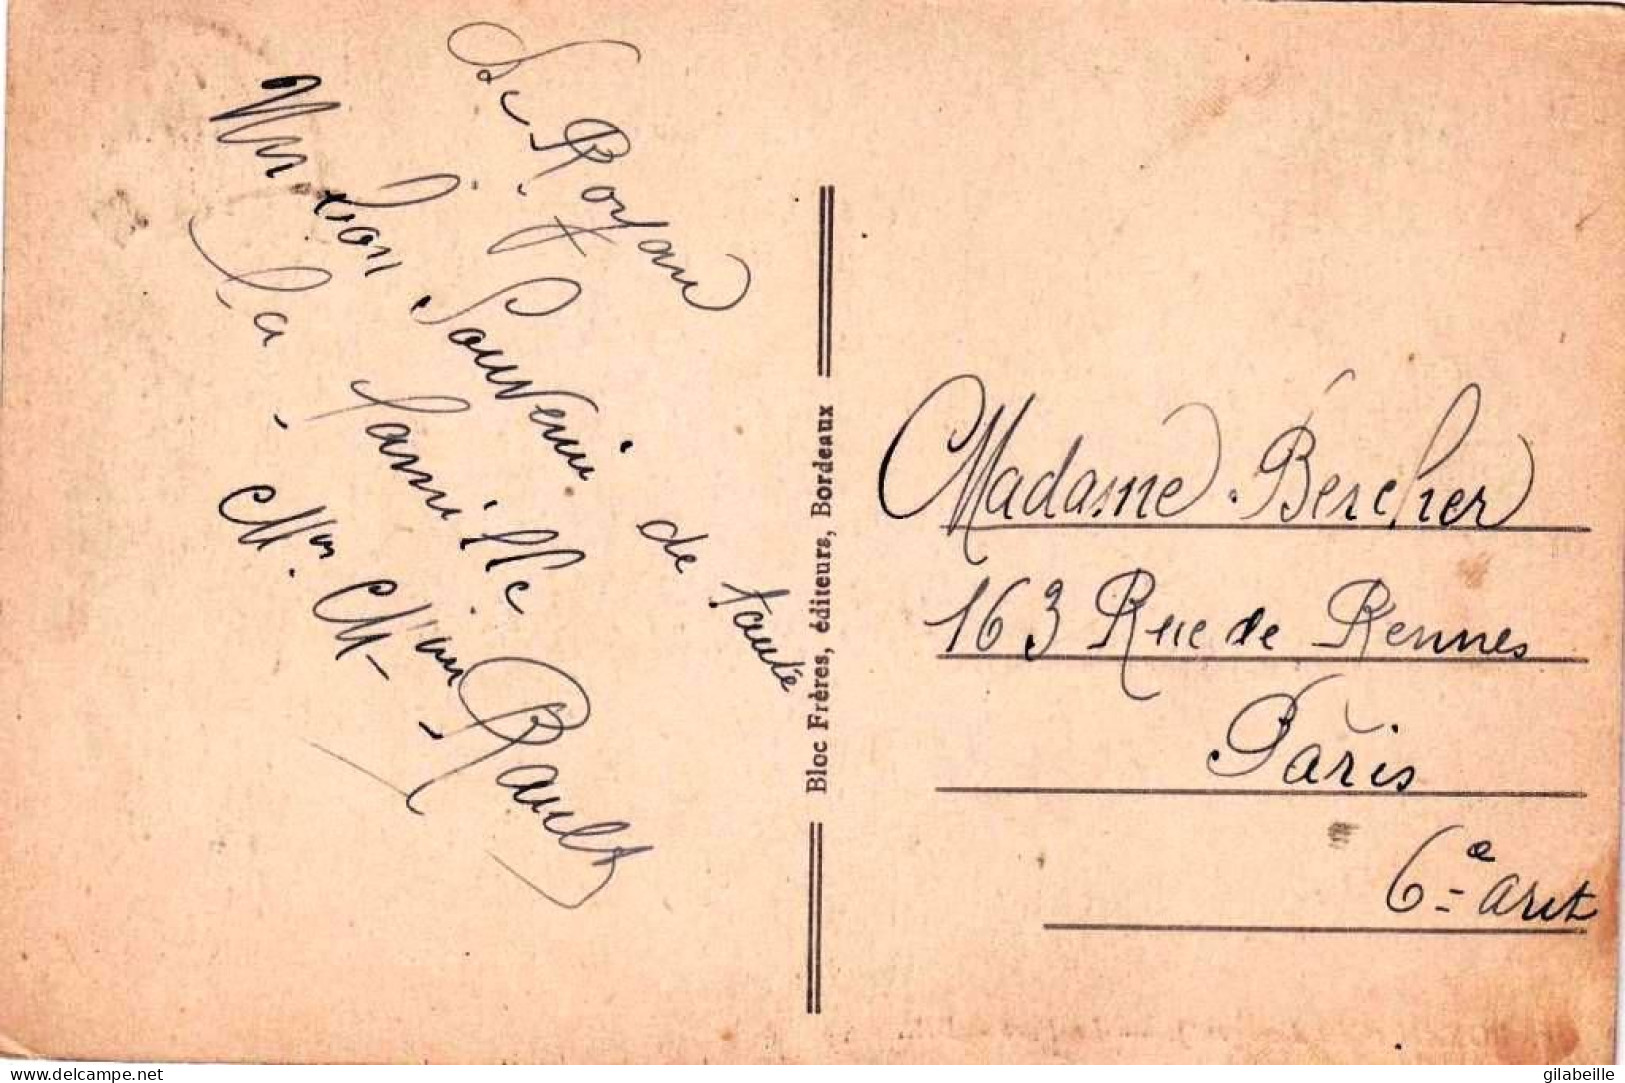 De Royan
Un bon Souvenir de toute
La famille
Mr. Mme Rault
Bloc Frères, éditeurs, Bordeaux
Madame Bercher
163 Rue de Rennes
Paris
6e arrt
www.delcampe.net
gilabeille